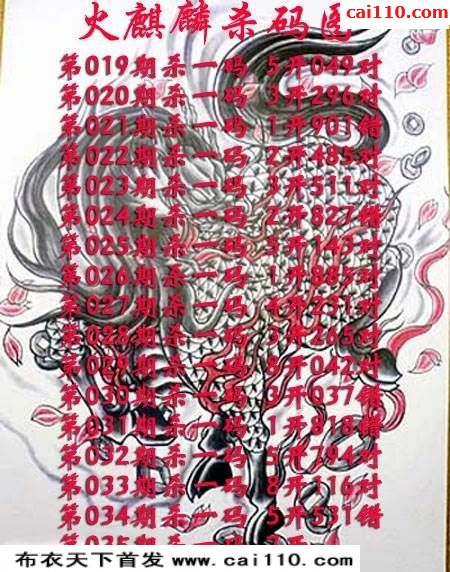 cai110.com
火麒麟杀码区
第019期杀一码 5开049对
第020期杀一码 3开296对
第021期杀一码 1开901错
第022期杀一码 2开485对
第023期杀一码 3开511对
第024期杀一码 2开827错
第025期杀一码 5开143对
第026期杀一码 1开885对
第027期杀一码 4开231对
第028期杀一码 3开265对
第029期杀一码 8开042对
第030期杀一码 3开037错
第031期杀一码 1开818错
第032期杀一码 5开794对
第033期杀一码 8开116对
第034期杀一码 5开531错
布衣天下首发 www.cai110.com